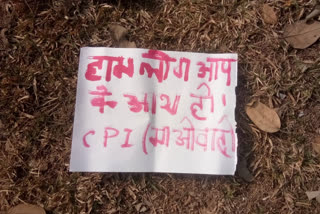 हाम लोग आप
के साथ हो।
CPI (माओवादी